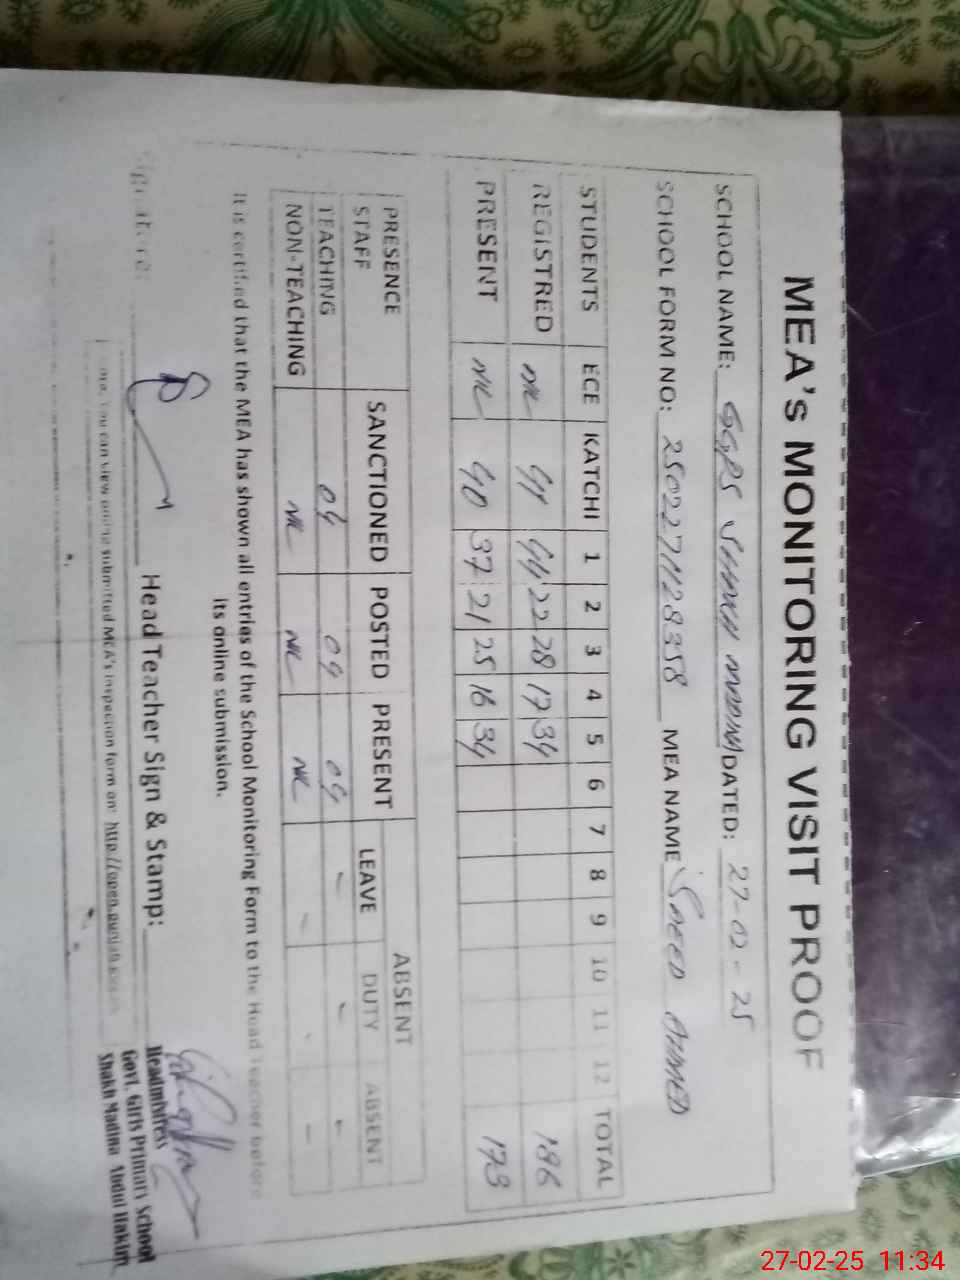 MEA's MONITORING VISIT PROOF
SCHOOL NAME: GGPS SHAKH MADINA DATED: 27-02-25
SCHOOL FORM NO: 2502271128358 MEA NAME SAEED AHMED
STUDENTS ECE KATCHI 1 2 3 4 5 6 7 8 9 10 11 12 TOTAL
REGISTRED NIL 41 44 22 28 17 34 186
PRESENT NIL 40 37 21 25 16 34 173
PRESENCE STAFF SANCTIONED POSTED PRESENT ABSENT
LEAVE DUTY ABSENT
TEACHING 04 04 04 - - -
NON-TEACHING NIL NIL NIL - - -
It is certified that the MEA has shown all entries of the School Monitoring Form to the Head Teacher before
its online submission.
Signature: Head Teacher Sign & Stamp:
Headmistress
Govt. Girls Primary School
Shakh Madina Abdul Hakim
You can view online submitted MEA's inspection form on: http://open.punjab.gov.pk
27-02-25 11:34